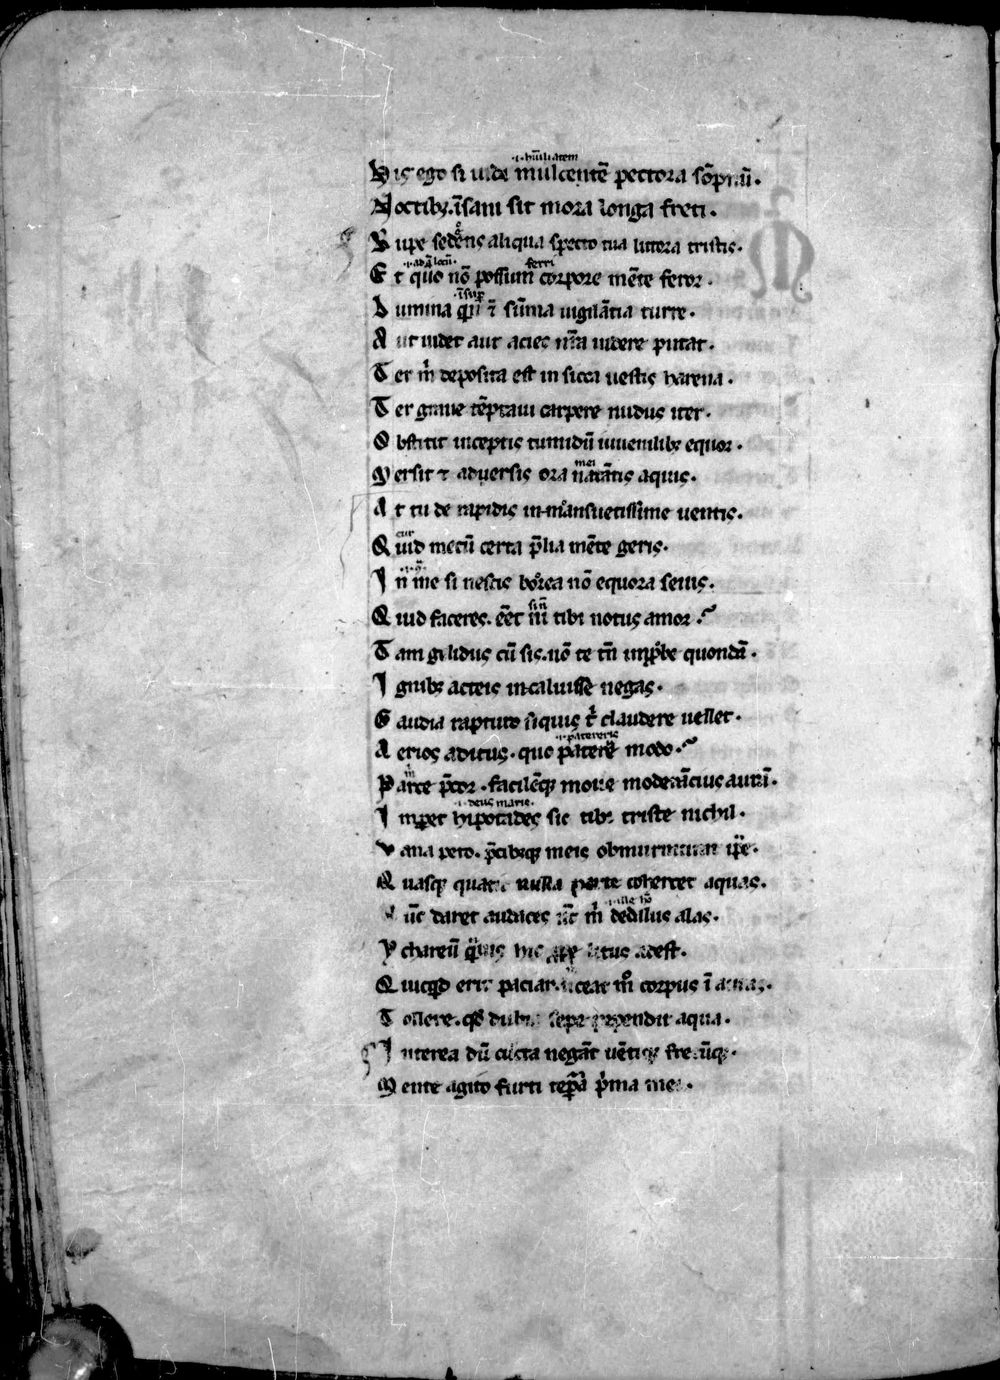 .i. hūiliatem
His ego si uidi mulcentē pectora sōpnū.
Noctibꝫ. īsani sit mora longa freti.
Rupe sedēns aliqua specto tua littora tristis.
.i. ad q̄ locū. ferri
Et quo nō possum corpore mēte feror.
.i. sup
Lumina qn̄ ī sūma uigilātia turre.
Aut uidet aut acies nr̄a uidere putat.
Ter m̄ deposita est in sicca uestis harena.
Ter graue tēptaui carpere nudus iter.
Obstitit inceptis tumidū iuuenilibꝫ equor.
mei
Mersit ⁊ aduersis ora natātis aquis.
At tu de rapidis inmāsuetissime uentis.
cur
Quid mecū certa p̄lia mēte geris.
In me si nescis borea nō equora seuis.
sin
Quid faceres. eēt ni tibi notus amor.
Tam gelidus cū sis. nō te tn̄ improbe quondā.
Ignibꝫ acteis incaluisse negas.
Gaudia rapturo siquis t̄ claudere uellet.
.i. patereris
Aerios aditus. quo paterere modo.
m̄
Parce p̄cor. facilēqꝫ moue moderācius aurā.
.i. deus maris.
Imperet hipotades sic tibi triste nichil.
Vana peto. p̄cibꝫqꝫ meis obmurmurat ip̄e.
Quasqꝫ quatit nulla parte cohercet aquas.
.i. ille hō
Nūc daret audaces ut̄ m̄ dedalus alas.
Ychareū q̄uis hic prope litus adest.
Quicqd erit paciar liceat m̄o corpus ī auras.
Tollere. qd̄ dubia sepe pependit aqua.
Interea dū cūcta negāt uētiqꝫ fretūqꝫ.
Mente agito furti tēpora p̄ma mei.